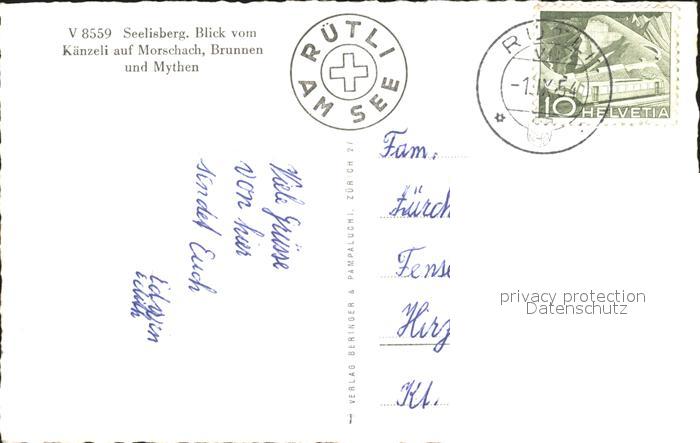 V 8559 Seelisberg. Blick vom
Känzeli auf Morschach, Brunnen
und Mythen
RÜTLI
AM SEE
RÜTLI
10 HELVETIA
Viele Grüsse
von hier
sindet Euch
Edwin
VERLAG BERINGER & PAMPALUCHI, ZÜRICH 2/
Fam.
Zürch
Fense
Hirz
Kt.
privacy protection
Datenschutz